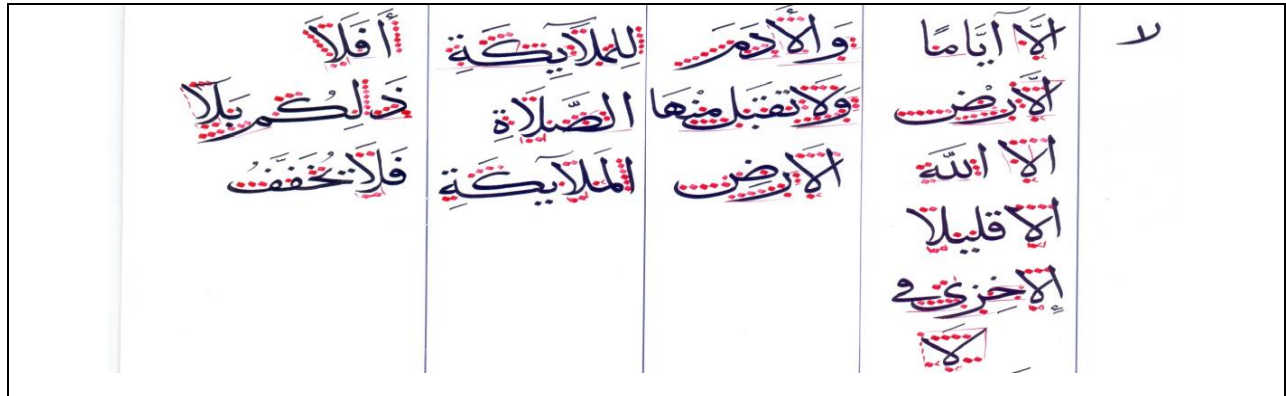 لا
إلَّا أَيَّامًا
الَأرْض
إلا اللَّهَ
إلا قليلا
إلا خِزىٌ فى
لَا
وإلأَدَمَ
وَلَا تقبَل مِنْهَا
الأرضِ
لِلمَلَآيِكَةِ
الصَّلَاةِ
المَلَآيِكَةِ
أَفَلَا
ذَالِكُم بَلَآ
فَلَا تُخَفَّفُ